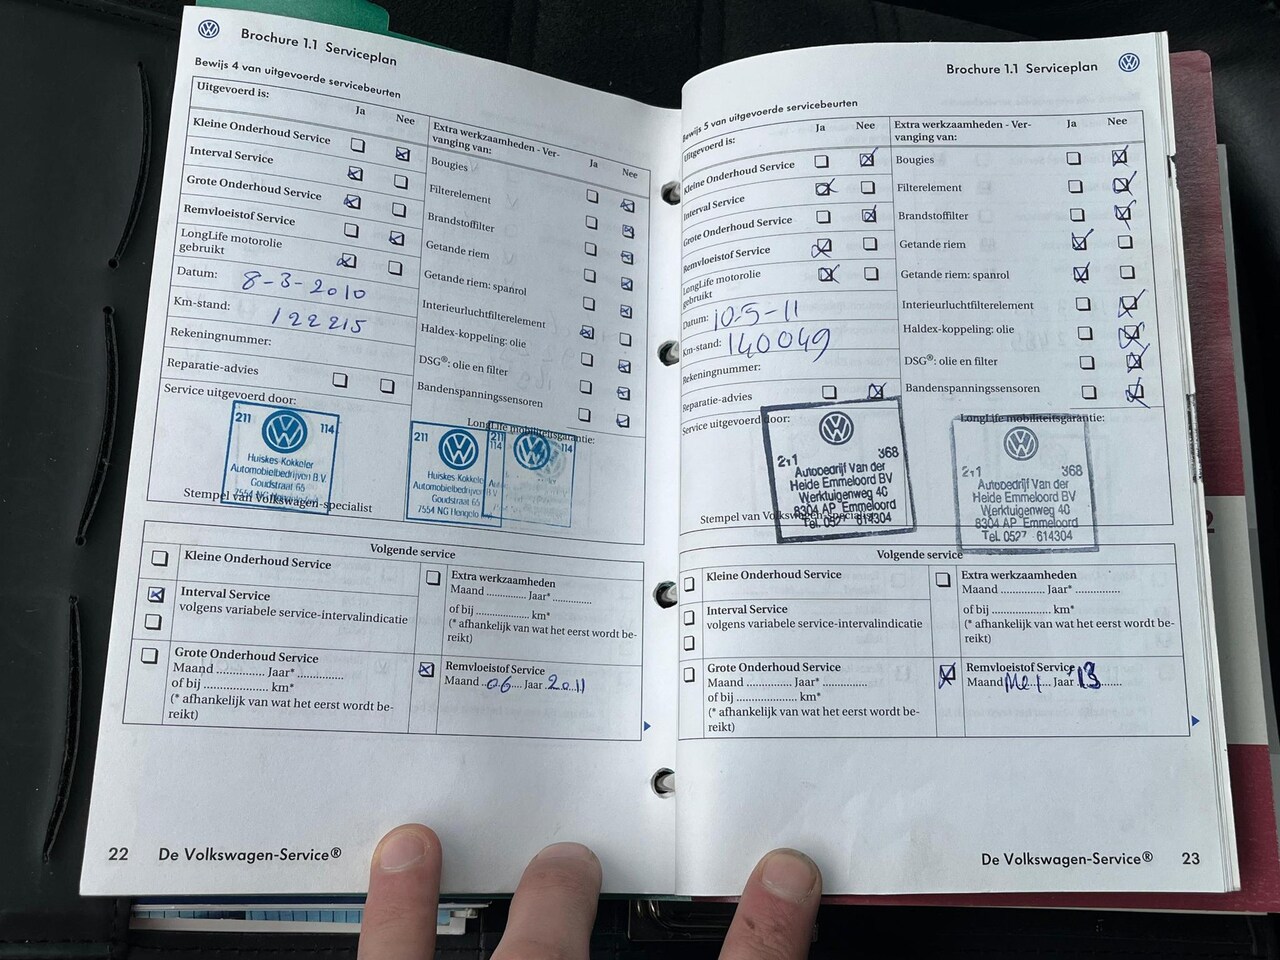 Brochure 1.1 Serviceplan
Bewijs 4 van uitgevoerde servicebeurten
Uitgevoerd is:
Ja Nee
Kleine Onderhoud Service
Interval Service
Grote Onderhoud Service
Remvloeistof Service
LongLife motorolie
gebruikt
Datum: 8-3-2010
Km-stand: 122215
Rekeningnummer:
Reparatie-advies
Service uitgevoerd door:
Extra werkzaamheden - Ver-
vanging van:
Ja Nee
Bougies
Filterelement
Brandstoffilter
Getande riem
Getande riem: spanrol
Interieurluchtfilterelement
Haldex-koppeling: olie
DSG®: olie en filter
Bandenspanningssensoren
LongLife mobiliteitsgarantie:
211 114
Huiskes-Kokkeler
Automobielbedrijven B.V.
Goudstraat 65
7554 NG Hengelo
211
Huiskes Kokkele
Automobielbedrijven
Goudstraat 65
7554 NG Hengelo
211
114
114
Stempel van Volkswagen-specialist
Volgende service
Kleine Onderhoud Service
Interval Service
volgens variabele service-intervalindicatie
Grote Onderhoud Service
Maand ............. Jaar* .............
of bij ................... km*
(* afhankelijk van wat het eerst wordt be-
reikt)
Extra werkzaamheden
Maand ............ Jaar* .............
of bij .............. km*
(* afhankelijk van wat het eerst wordt be-
reikt)
Remvloeistof Service
Maand 06 Jaar 2011
22 De Volkswagen-Service®
Brochure 1.1 Serviceplan
Bewijs 5 van uitgevoerde servicebeurten
Uitgevoerd is:
Ja Nee
Kleine Onderhoud Service
Interval Service
Grote Onderhoud Service
Remvloeistof Service
LongLife motorolie
gebruikt
Datum: 10-5-11
Km-stand: 140049
Rekeningnummer:
Reparatie-advies
Service uitgevoerd door:
Extra werkzaamheden - Ver-
vanging van:
Ja Nee
Bougies
Filterelement
Brandstoffilter
Getande riem
Getande riem: spanrol
Interieurluchtfilterelement
Haldex-koppeling: olie
DSG®: olie en filter
Bandenspanningssensoren
LongLife mobiliteitsgarantie:
211 368
Autobedrijf Van der
Heide Emmeloord BV
Werktuigenweg 40
8304 AP Emmeloord
Tel. 0527 - 614304
211 368
Autobedrijf Van der
Heide Emmeloord BV
Werktuigenweg 40
8304 AP Emmeloord
Tel. 0527 - 614304
Stempel van Volkswagen-specialist
Volgende service
Kleine Onderhoud Service
Interval Service
volgens variabele service-intervalindicatie
Grote Onderhoud Service
Maand ............. Jaar* .............
of bij ................... km*
(* afhankelijk van wat het eerst wordt be-
reikt)
Extra werkzaamheden
Maand ............ Jaar* .............
of bij .............. km*
(* afhankelijk van wat het eerst wordt be-
reikt)
Remvloeistof Service
Maand Mei Jaar 13
De Volkswagen-Service® 23